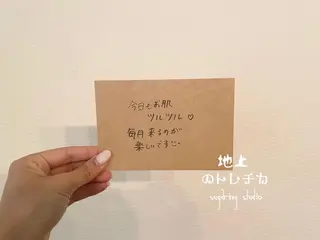 今日もお肌
ツルツル♡
毎月来るのが
楽しいです
地上
のトレチカ